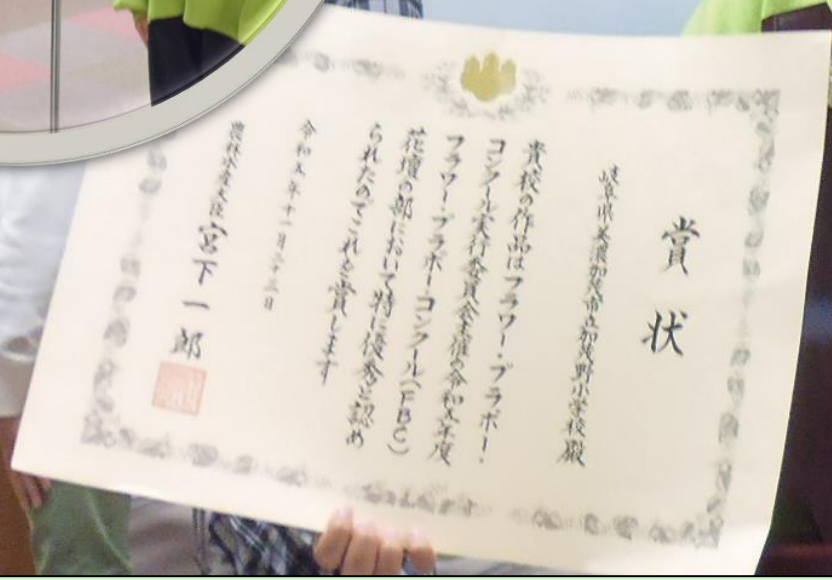 賞状
岐阜県美濃加茂市立加茂野小学校殿
貴校の作品はフラワー・ブラボー・
コンクール実行委員会主催の令和五年度
フラワー・ブラボーコンクール(FBC)
花壇の部において特に優秀と認め
られたのでこれを賞します
令和五年十一月二十三日
農林水産大臣 宮下一郎